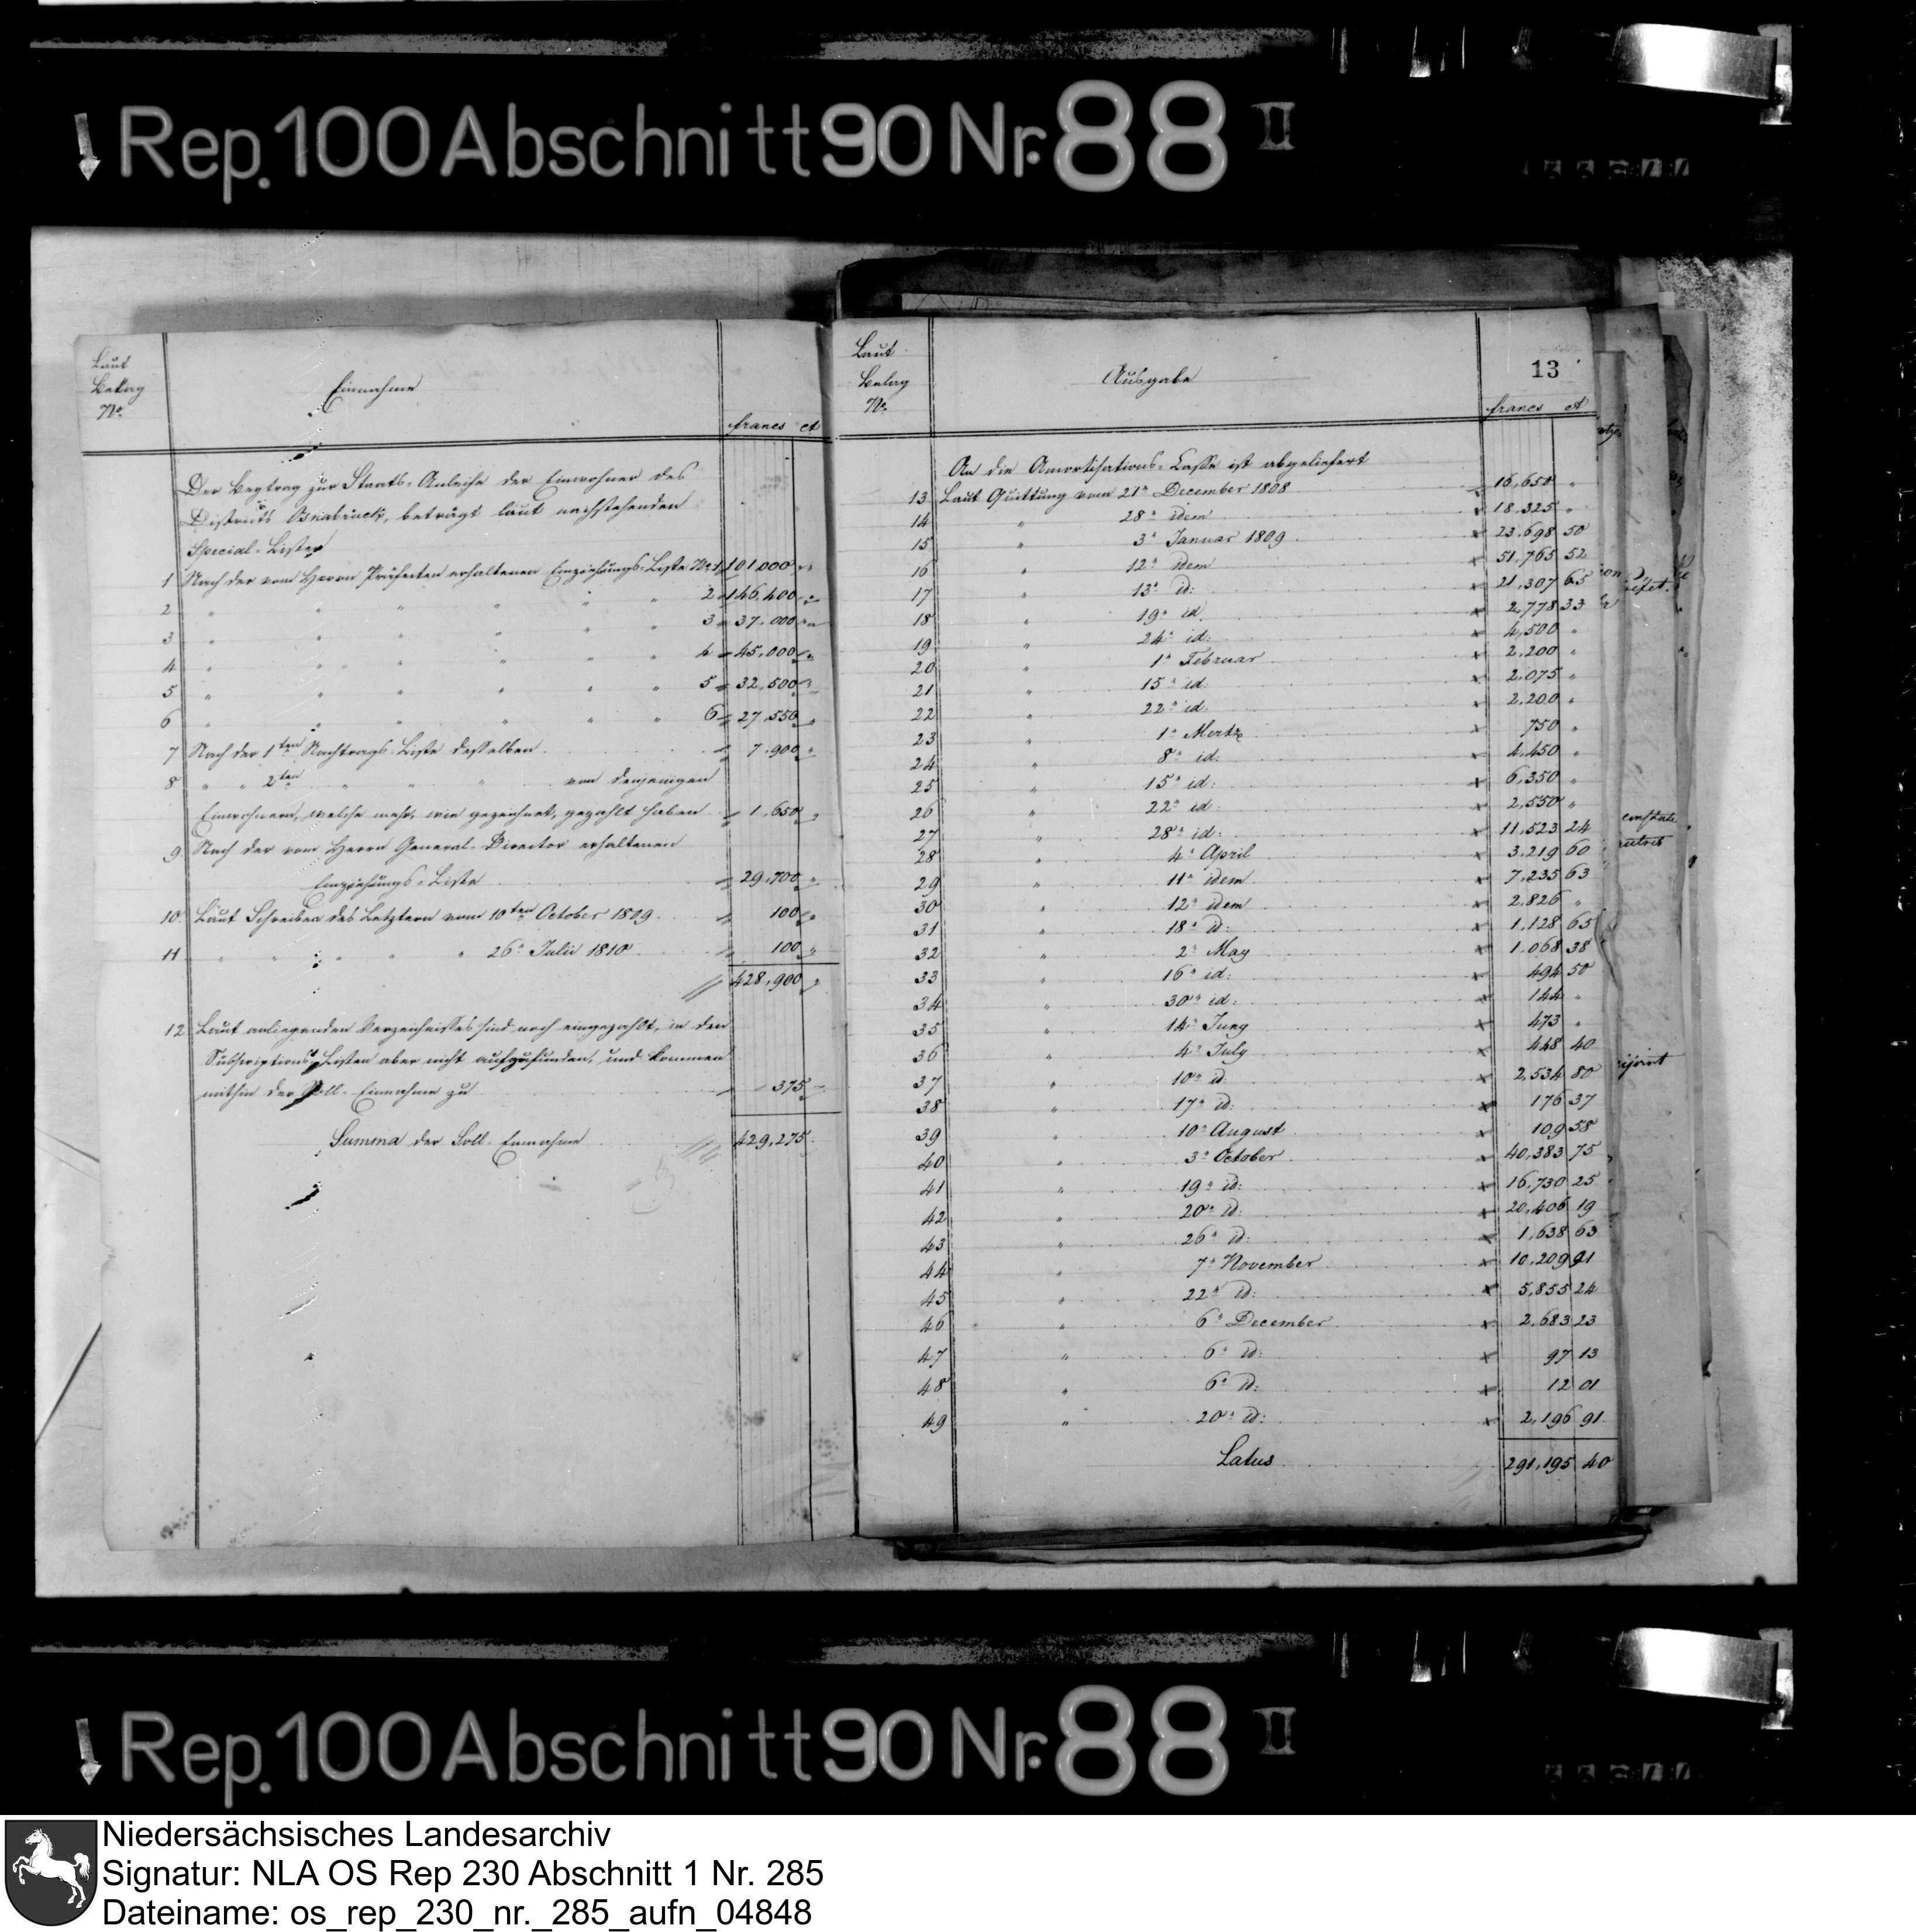 Rep. 100 Abschnitt 90 Nr. 88 II
Laut
Belag
No.
Einnahme
francs ct
Der Beytrag zur Staats-Anleihe der Einwohner des
Districts Osnabrück, beträgt laut nachstehenden
Special-Listen
1 Nach der vom Herrn Präfecten erhaltenen Einziehungs-Liste No. 1 101,000 "
2 " " " " " " 2 146,400 "
3 " " " " " " 3 37,000 "
4 " " " " " " 4 45,000 "
5 " " " " " " 5 32,500 "
6 " " " " " " 6 27,550 "
7 Nach der 1ten Nachtrags-Liste desselben 7,900 "
8 " " 2ten " " " von denjenigen
Einwohnern, welche mehr, wie gezeichnet, gezahlt haben 1,650 "
9 Nach der vom Herrn General-Director erhaltenen
Einziehungs-Liste 29,700 "
10 Laut Schreiben des Letztern vom 10ten October 1809 100 "
11 " " " " " 26n Julii 1810 100 "
428,900 "
12 Laut anliegenden Verzeichnisses sind noch eingezahlt, in den
Subscriptions-Listen aber nicht aufzufunden, und kommen
mithin der Soll-Einnahme zu 375
Summa der Soll-Einnahme 429,275
Laut
Belag
No.
Ausgabe
13
francs ct
An die Amortisations-Casse ist abgeliefert
13 Laut Quittung vom 21n December 1808 16,650 "
14 " 28n idem 18,325 "
15 " 3n Januar 1809 23,698 50
16 " 12n idem 51,765 52
17 " 13n id: 21,307 65
18 " 19n id. 2,778 33
19 " 24n id: 4,500 "
20 " 1n Februar 2,200 "
21 " 15n id. 2,075 "
22 " 22n id. 2,200 "
23 " 1n Mertz 750 "
24 " 8n id: 4,450 "
25 " 15n id: 6,350 "
26 " 22n id: 2,550 "
27 " 28n id: 11,523 24
28 " 4n April 3,219 60
29 " 11n idem 7,235 63
30 " 12n idem 2,826 "
31 " 18n id: 1,128 65
32 " 2n May 1,068 38
33 " 16n id: 494 50
34 " 30n id: 144 "
35 " 14n Juny 473 "
36 " 4n July 448 40
37 " 10n id: 2,534 80
38 " 17n id: 176 37
39 " 10n August 109 58
40 " 3n October 40,383 75
41 " 19n id: 16,730 25
42 " 20n id: 20,406 19
43 " 26n id: 1,638 63
44 " 7n November 10,209 91
45 " 22n id: 5,855 24
46 " 6n December 2,683 23
47 " 6n id: 97 13
48 " 6n id: 12 01
49 " 20n id: 2,196 91
Latus 291,195 40
Rep. 100 Abschnitt 90 Nr. 88 II
Niedersächsisches Landesarchiv
Signatur: NLA OS Rep 230 Abschnitt 1 Nr. 285
Dateiname: os_rep_230_nr._285_aufn_04848